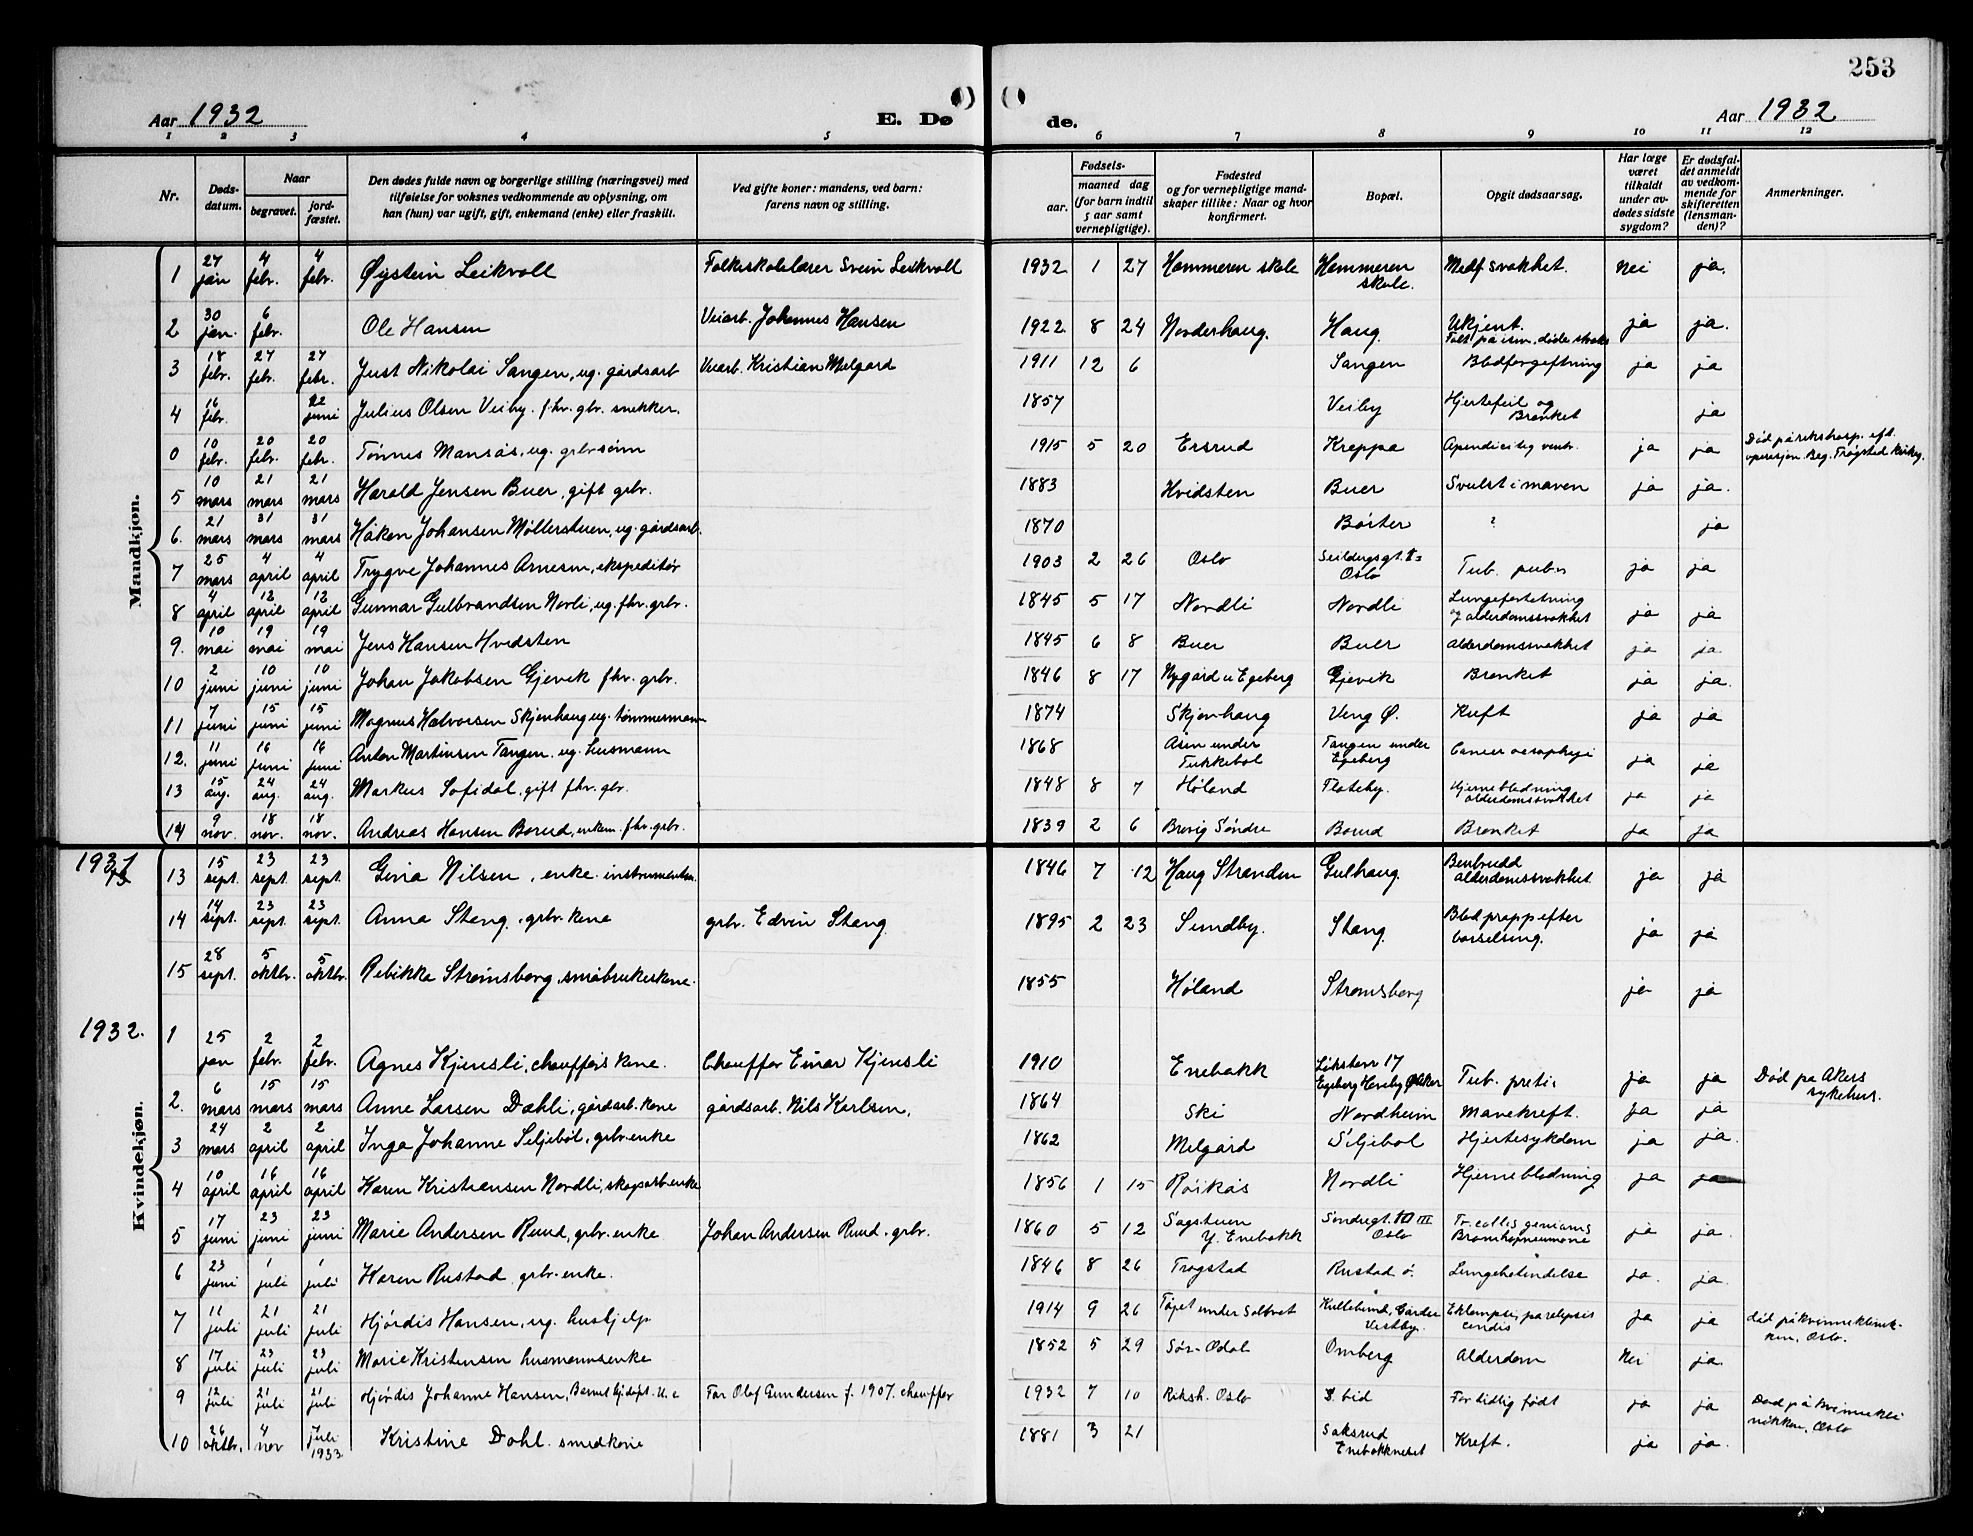 253
Aar 1932 E. Dø de. Aar 1932
1 2 3 4 5 6 7 8 9 10 11 12
Nr. Døds-datum. Naar begravet. jord-fæstet. Den dødes fulde navn og borgerlige stilling (næringsvei) med tilføielse for voksnes vedkommende av oplysning, om han (hun) var ugift, gift, enkemand (enke) eller fraskilt. Ved gifte koner: mandens, ved barn: farens navn og stilling. Fødsels- aar. maaned dag (for barn indtil 5 aar samt vernepligtige). Fødested og for vernepligtige mandskaper tillike: Naar og hvor konfirmert. Bopæl. Opgit dødsaarsag. Har læge været tilkaldt under avdødes sidste sygdom? Er dødsfaldet anmeldt av vedkommende for skifteretten (lensmanden)? Anmerkninger.
Mandkjøn.
1 27 jan 4 febr. 4 febr. Øystein Leikvoll Folkeskolelærer Svein Leikvoll 1932 1 27 Hammeren skole Hammeren skole. Medf. svakhet. Nei ja.
2 30 jan. 6 febr. Ole Hansen Veiarb. Johannes Hansen 1922 8 24 Norderhaug. Haug. Ukjent. Falt på isen, døde straks ja ja.
3 18 febr. 27 febr. 27 febr. Just Nikolai Sangen, ug. gårdsarb Veiarb. Kristian Melgard 1911 12 6 Sangen Blodforgiftning ja ja
4 16 febr. 22 juni Julius Olsen Veiby. fhv. gbr. snekker. 1857 Veiby Hjertefeil og Bronket ja
0 10 febr. 20 febr. 20 febr. Tønnes Mansås, ug. grbr.sønn 1915 5 20 Ersrud Kreppa ja ja Død på rikshosp. eft. operasjon. Beg. Trøgstad kirkeg.
5 10 mars 21 mars 21 mars Harald Jensen Buer, gift grbr. 1883 Hvidsten Buer Svulst i maven ja ja.
6. 21 mars 31 mars 31 mars Håken Johansen Møllerstuen, ug. gårdsarb. 1870 Børter ? ja
7 25 mars 4 april 4 april Trygve Johannes Arnesen, ekspeditør 1903 2 26 Oslo Oslo Tub. pulm ja ja
8 4 april 12 april 12 april Gunnar Gulbrandsen Norli, ug. fhv. grbr. 1845 5 17 Nordli Nordli Lungefortetning og alderdomssvakhet ja ja
9. 10 mai 19 mai 19 mai Jens Hansen Hvidsten 1845 6 8 Buer Buer Alderdomssvakhet ja ja.
10 2 juni 10 juni 10 juni Johan Jakobsen Gjevik fhv. grbr. 1846 8 17 Nygård u Egeberg Gjevik Bronket ja ja.
11 7 juni 15 juni 15 juni Magnus Halvorsen Skjenhaug ug. tømmermann 1874 Skjenhaug Veng Ø. Kreft ja ja
12. 11 juni 16 juni 16 juni Anton Martinsen Tangen. ug. husmann 1868 Åsen under Tukkebøl Tangen under Egeberg Cancer oesophagi ja ja
13 15 aug. 24 aug. 24 aug. Markus Sofidal, gift fhv. gbr. 1848 8 7 Høland Flateby. Hjerneblødning alderdomssvakhet ja ja
14 9 nov. 18 nov. 18 nov. Andreas Hansen Borud, enkem. fhv. grbr. 1839 2 6 Brevig Søndre Borud Bronket ja ja
Kvindekjøn.
1931 13 15 sept. 23 sept. 23 sept. Gina Nilsen, enke. 1846 7 12 Haug Stranden Gulhaug. Benbrudd alderdomssvakhet ja ja
14 14 sept. 23 sept. 23 sept. Anna Stang, grbr. kone grbr. Edvin Stang 1895 2 23 Sundby. Stang. Blodpropp efter barselseng. ja ja
15 28 sept. 5 oktbr. 5 oktbr. Rebikka Strømsborg, småbrukerkone. 1855 Høland Strømsborg ja ja
1932. 1 25 jan 2 febr. 2 febr. Agnes Kjensli, chaufførs kone. Chauffør Einar Kjensli 1910 Enebakk Tub. ja ja Død på Akers sykehus.
2. 6 mars 15 mars 15 mars Anne Larsen Dæhli, gårdarb. kone gårdsarb. Nils Karlsen, 1864 Ski Nordheim Mavekreft. ja ja
3 24 mars 2 april 2 april Inga Johanne Seljebøl, grbr. enke 1862 Melgård Siljebøl Hjertesykdom ja ja.
4 10 april 16 april 16 april Karen Kristiansen Nordli, skogsarb. enke 1856 1 15 Røikås Nordli Hjerneblødning ja ja
5 17 juni 23 juni 23 juni Marie Andersen Ruud, grbr. enke Johan Andersen Ruud, grbr. 1860 5 12 Sagstuen Y. Enebakk Oslo Bronkopneumoni ja ja.
6 23 juni 1 juli 1 juli Karen Rustad, grbr. enke. 1846 8 26 Trøgstad Rustad ø. Lungebetendelse ja. ja.
7 11 juli 21 juli 21 juli Hjørdis Hansen, ug. hushjelp 1914 9 26 Tøyet under Solbret Vestby. Eklampsi, paralepsis cordis ja ja død på kvinneklinikken, Oslo.
8 17 juli 23 juli 23 juli Marie Kristensen husmannsenke 1852 5 29 Sør-Odal Omberg Alderdom Nei ja.
9 12 juli 21 juli 21 juli Hjørdis Johanne Hansen, Far Olaf Gundersen f. 1907. chauffør 1932 7 10 Riksh. Oslo For tidlig født ja ja Død på kvinneklinikken, Oslo
10 26 oktbr. 4 nov 7 juli 1933 Kristine Dahl. smedkone 1881 3 21 Saksrud Enebakkneset Kreft. ja ja.